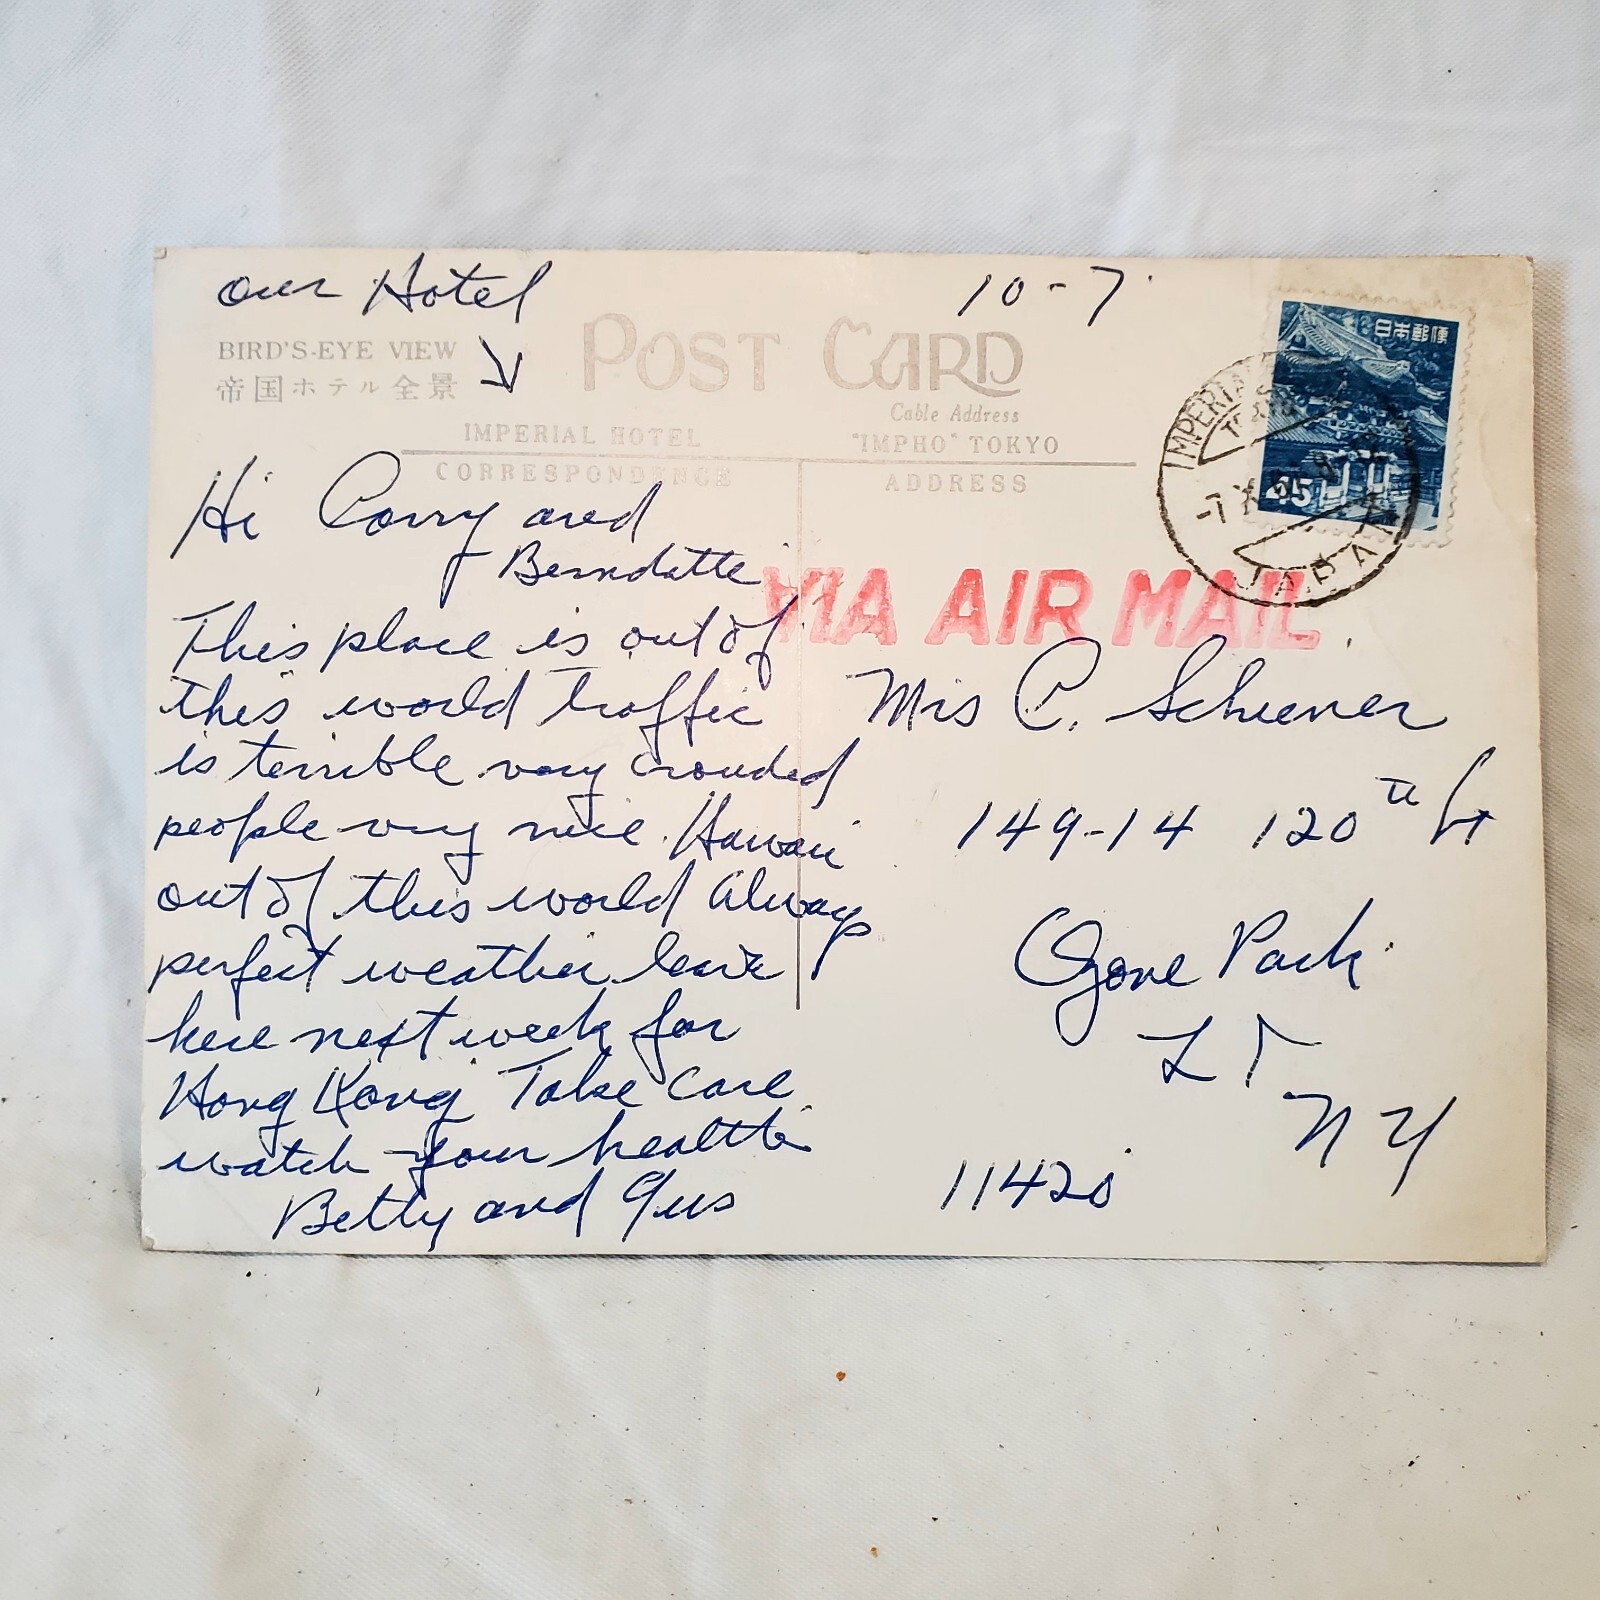 our Hotel
10-7
BIRD'S-EYE VIEW
帝国ホテル全景
POST CARD
Cable Address
IMPERIAL HOTEL
"IMPHO" TOKYO
CORRESPONDENCE
ADDRESS
日本郵便
45
IMPERIAL
-7 X
JAPAN
VIA AIR MAIL
Hi Corry and
Berndatte
This place is out of
this world traffic
is terrible very crouded
people very nice. Hawaii
out of this world always
perfect weather. leave
here next week for
Hong Kong Take Care
watch your health
Betty and Gus
Mrs C. Schiener
149-14 120th St
Ozone Park
L I
N Y
11420